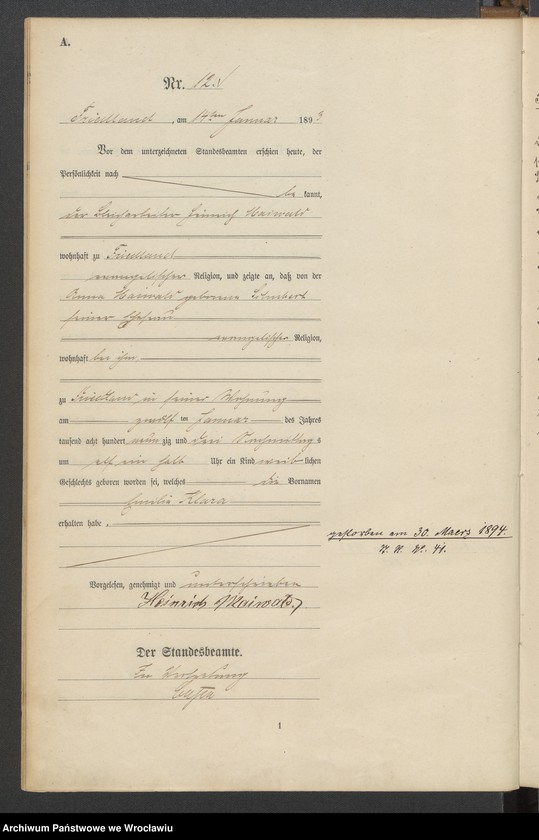 A.
Nr. 12.
Friedland, am 14ten Januar 1893
Vor dem unterzeichneten Standesbeamten erschien heute, der
Persönlichkeit nach
be kannt,
der Bleicharbeiter Heinrich Maiwald
wohnhaft zu Friedland
evangelischer Religion, und zeigte an, daß von der
Anna Maiwald geborene Schubert
seiner Ehefrau
evangelischer Religion,
wohnhaft bei ihm
zu Friedland in seiner Wohnung
am zwölf ten Januar des Jahres
tausend acht hundert neun zig und drei Vormittags
um elf ein halb Uhr ein Kind weib lichen
Geschlechts geboren worden sei, welches die Vornamen
Emilie Klara
erhalten habe.
gestorben am 30. Maerz 1894.
N. N. Nr. 41.
Vorgelesen, genehmigt und unterschrieben
Heinrich Maiwald
Der Standesbeamte.
In Vertretung
1
Archiwum Państwowe we Wrocławiu